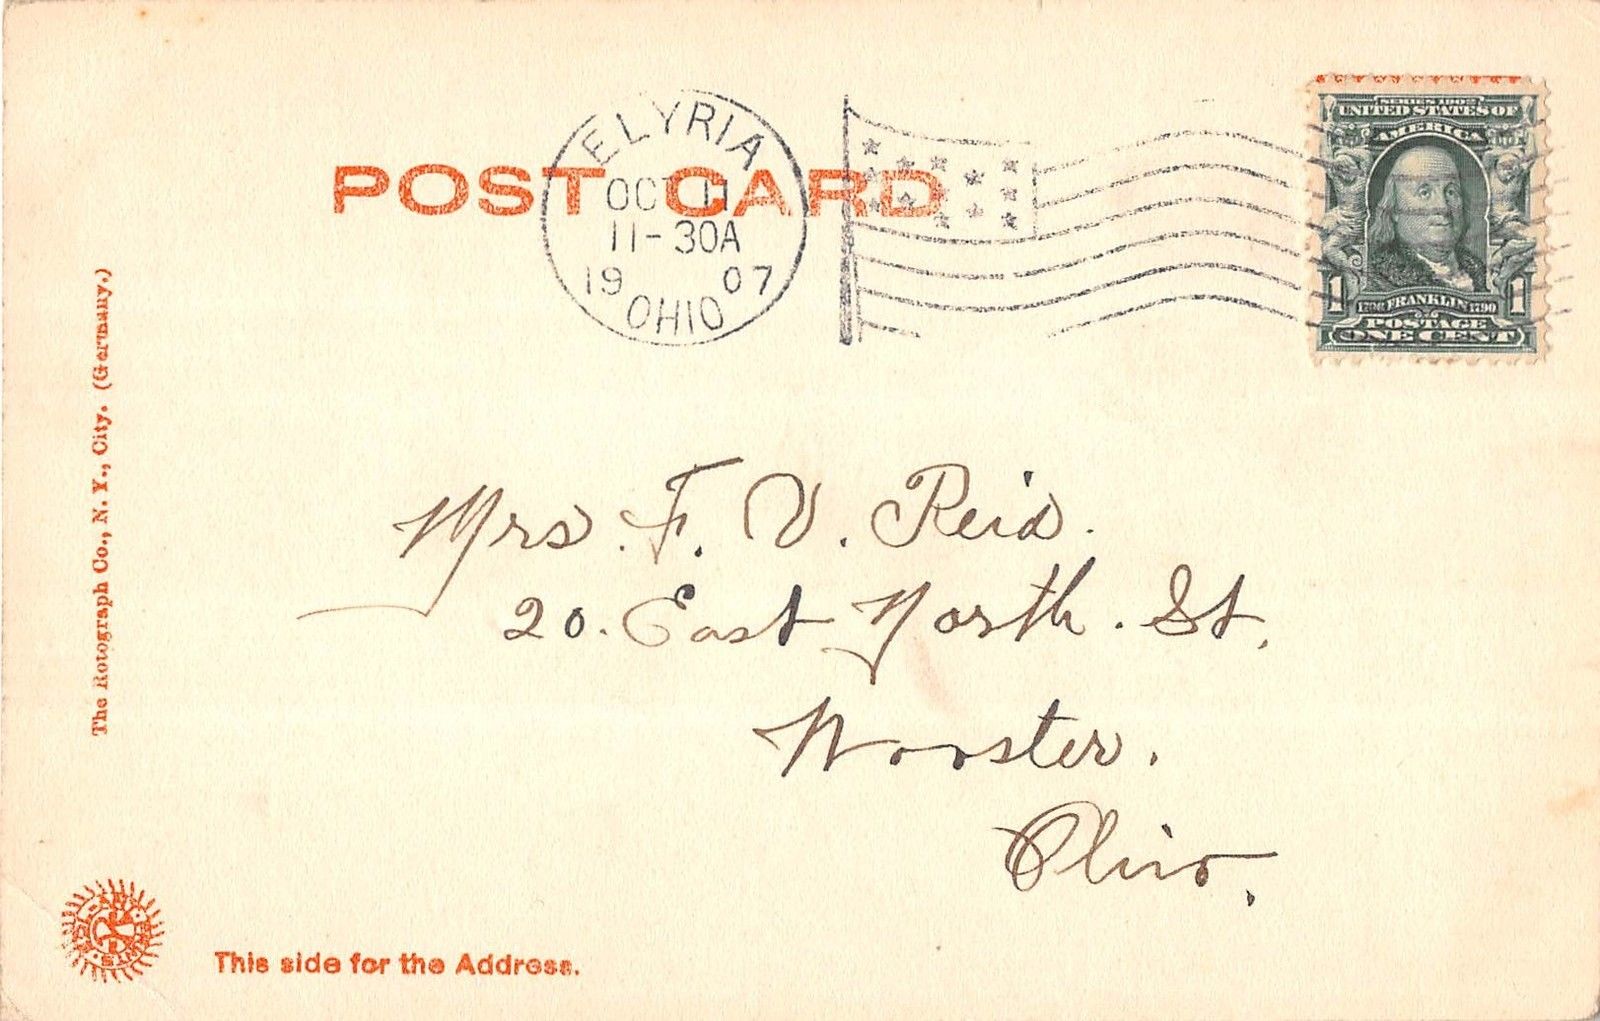 POST CARD
ELYRIA
OCT 11
11-30A
19 07
OHIO
SERIES 1902
UNITED STATES OF
AMERICA
1 FRANKLIN 1790 1
POSTAGE
ONE CENT
The Rotograph Co., N. Y., City. (Germany.)
Mrs. F. V. Reid.
20. East North. St,
Wooster.
Ohio.
This side for the Address.